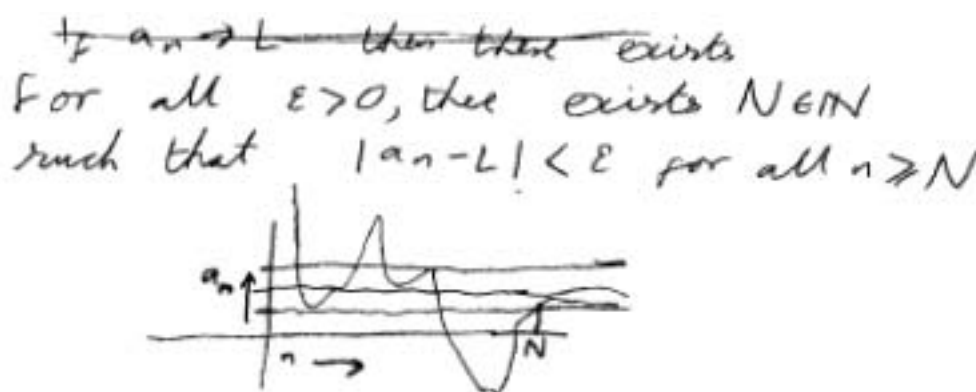 If aₙ → L then there exists
For all ε>0, thee exists N∈ℕ
such that |aₙ-L| < ε for all n ≥ N
aₙ
n
N